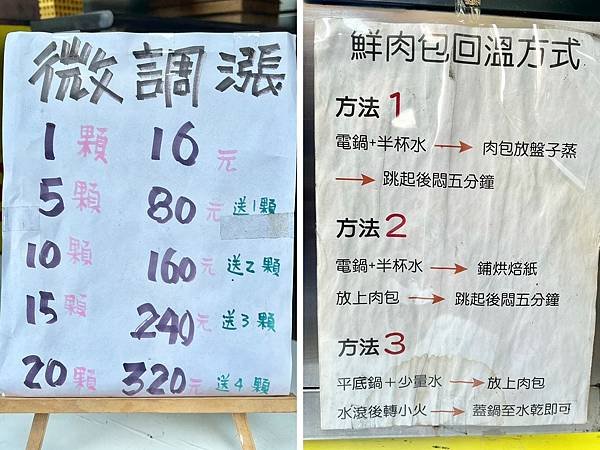 微調漲
1顆 16元
5顆 80元 送1顆
10顆 160元 送2顆
15顆 240元 送3顆
20顆 320元 送4顆
鮮肉包回溫方式
方法1
電鍋+半杯水 → 肉包放盤子蒸
→ 跳起後悶五分鐘
方法2
電鍋+半杯水 → 鋪烘焙紙
放上肉包 → 跳起後悶五分鐘
方法3
平底鍋+少量水 → 放上肉包
水滾後轉小火 → 蓋鍋至水乾即可